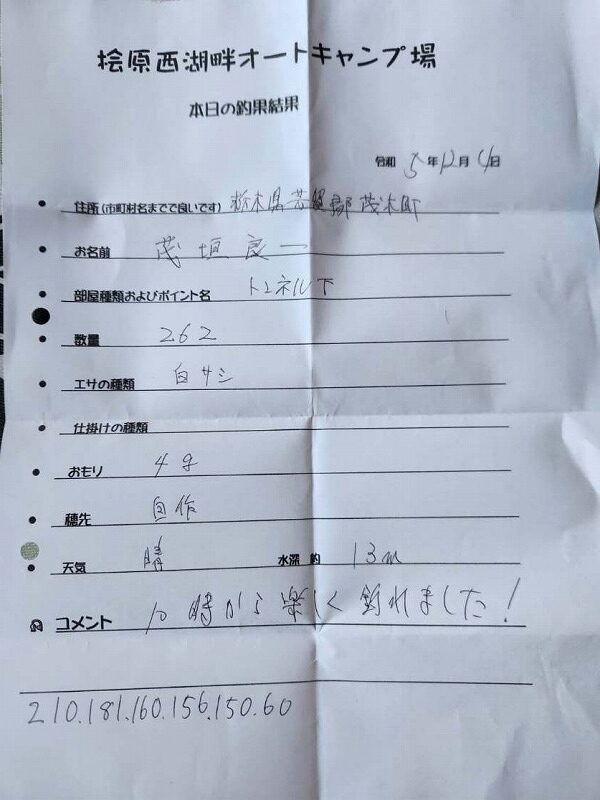 桧原西湖畔オートキャンプ場
本日の釣果結果
令和 5年12月4日
住所(市町村名までで良いです) 栃木県芳賀郡茂木町
お名前 茂垣良一
部屋種類およびポイント名 トンネル下
数量 262
エサの種類 白サシ
仕掛けの種類
おもり 4g
穂先 自作
天気 晴 水深 約 13m
コメント 10時から楽しく釣れました!
210.181.160.156.150.60